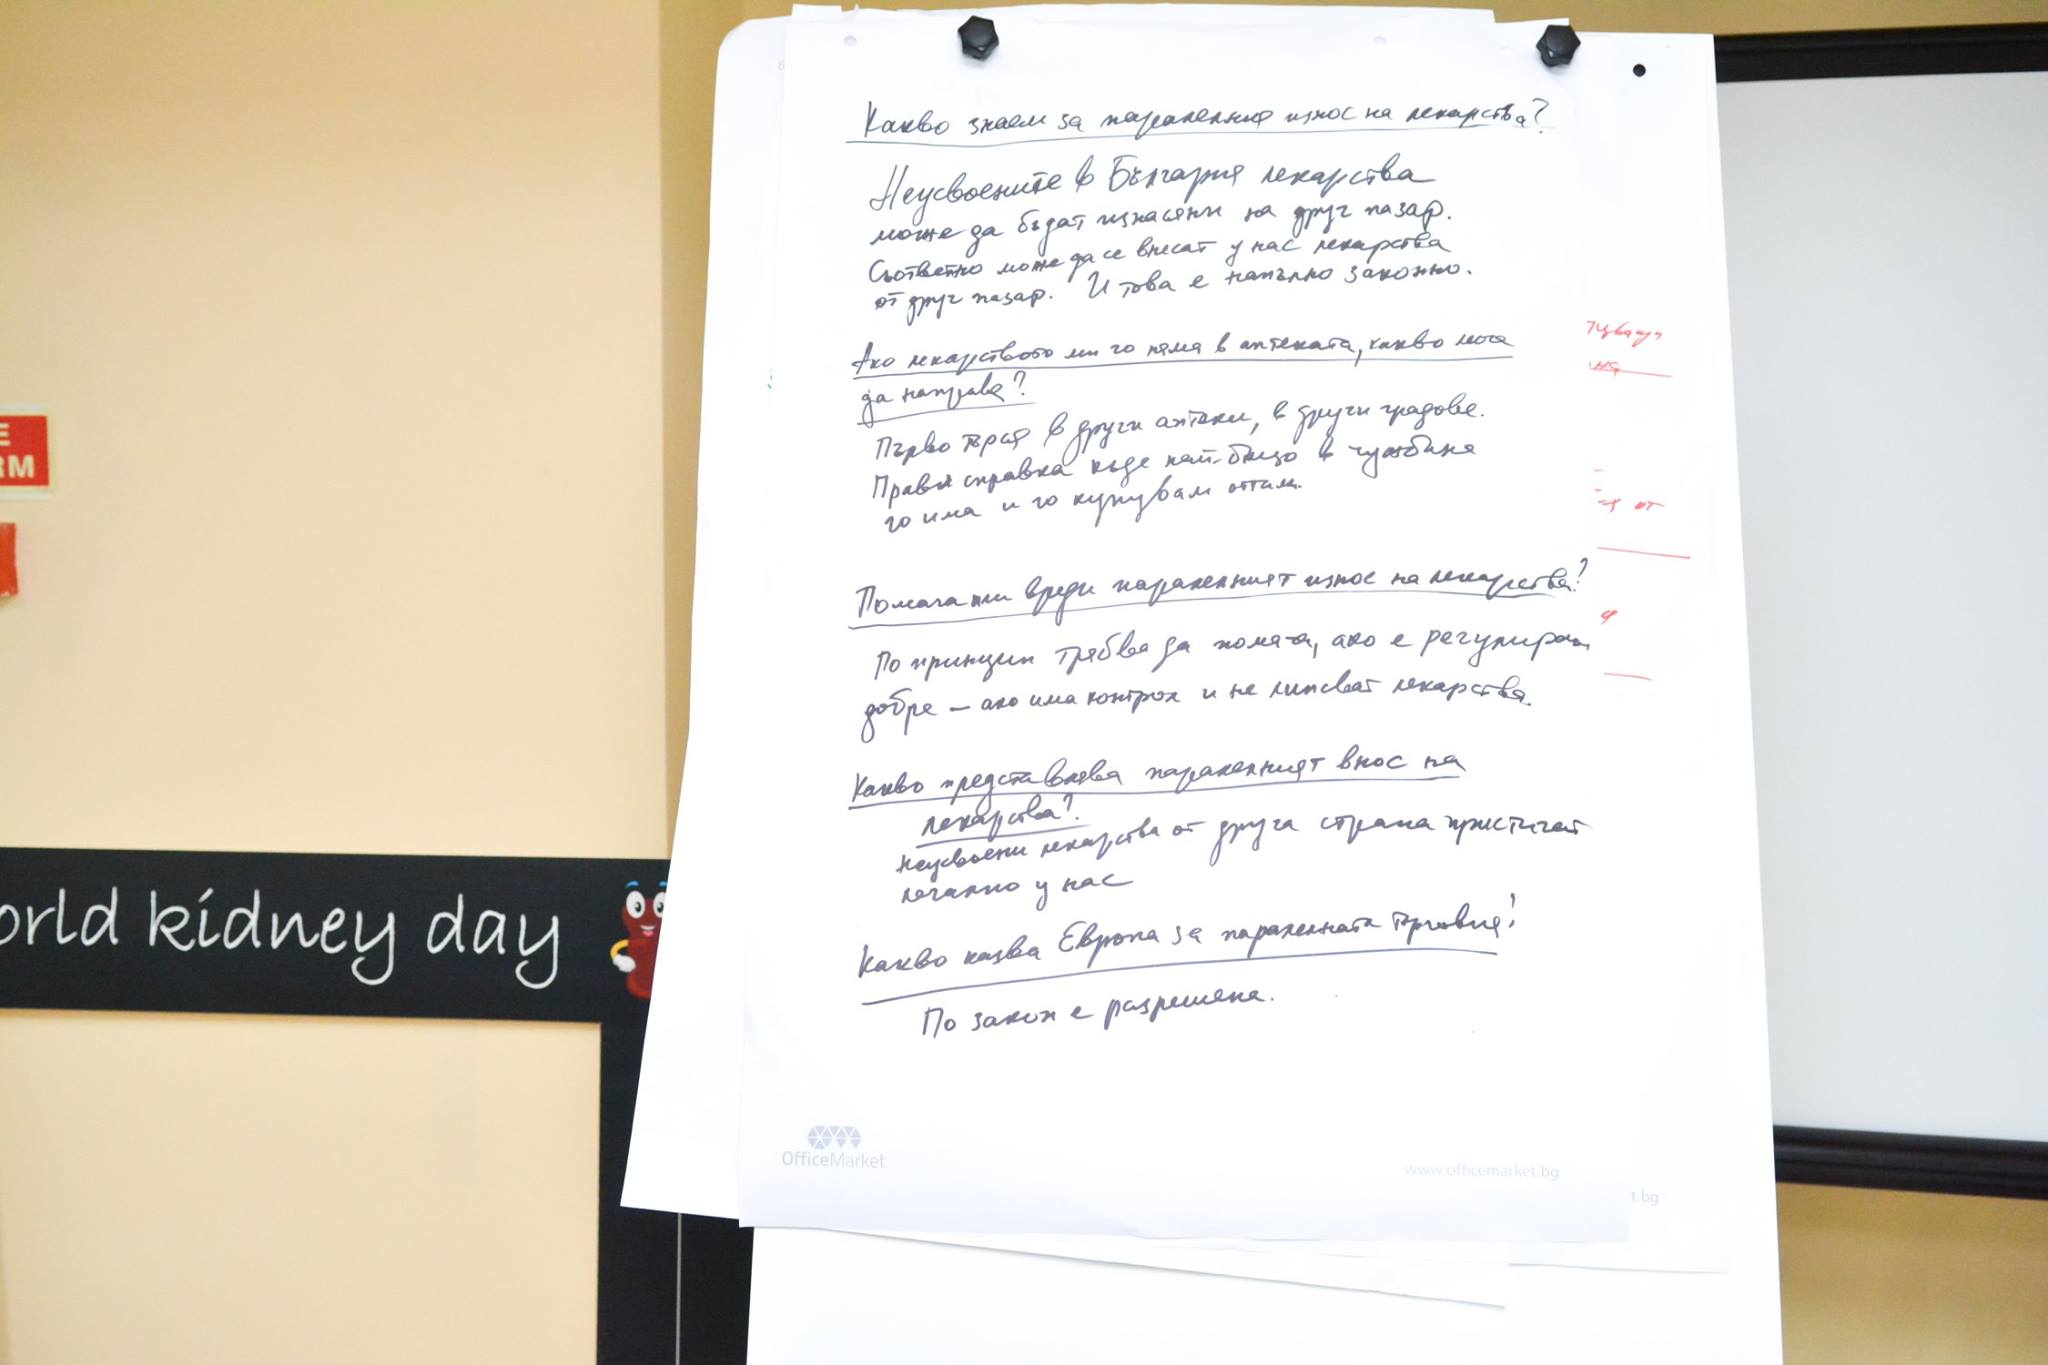 Какво знаем за паралелния износ на лекарства?
Неусвоените в България лекарства
може да бъдат изнасяни на друг пазар.
Съответно може да се внесат у нас лекарства
от друг пазар. И това е напълно законно.
Ако лекарството ми го няма в аптеката, какво мога
да направя?
Първо търся в други аптеки, в други градове.
Правя справка къде най-близо в чужбина
го има и го купувам оттам.
Помага или вреди паралелният износ на лекарства?
По принцип трябва да помага, ако е регулиран
добре – ако има контрол и не липсват лекарства.
Какво представлява паралелният внос на
лекарства?
неусвоени лекарства от друга страна пристигат
легално у нас
Какво казва Европа за паралелната търговия?
По закон е разрешена.
OfficeMarket
www.officemarket.bg
t.bg
от
E
RM
orld kidney day